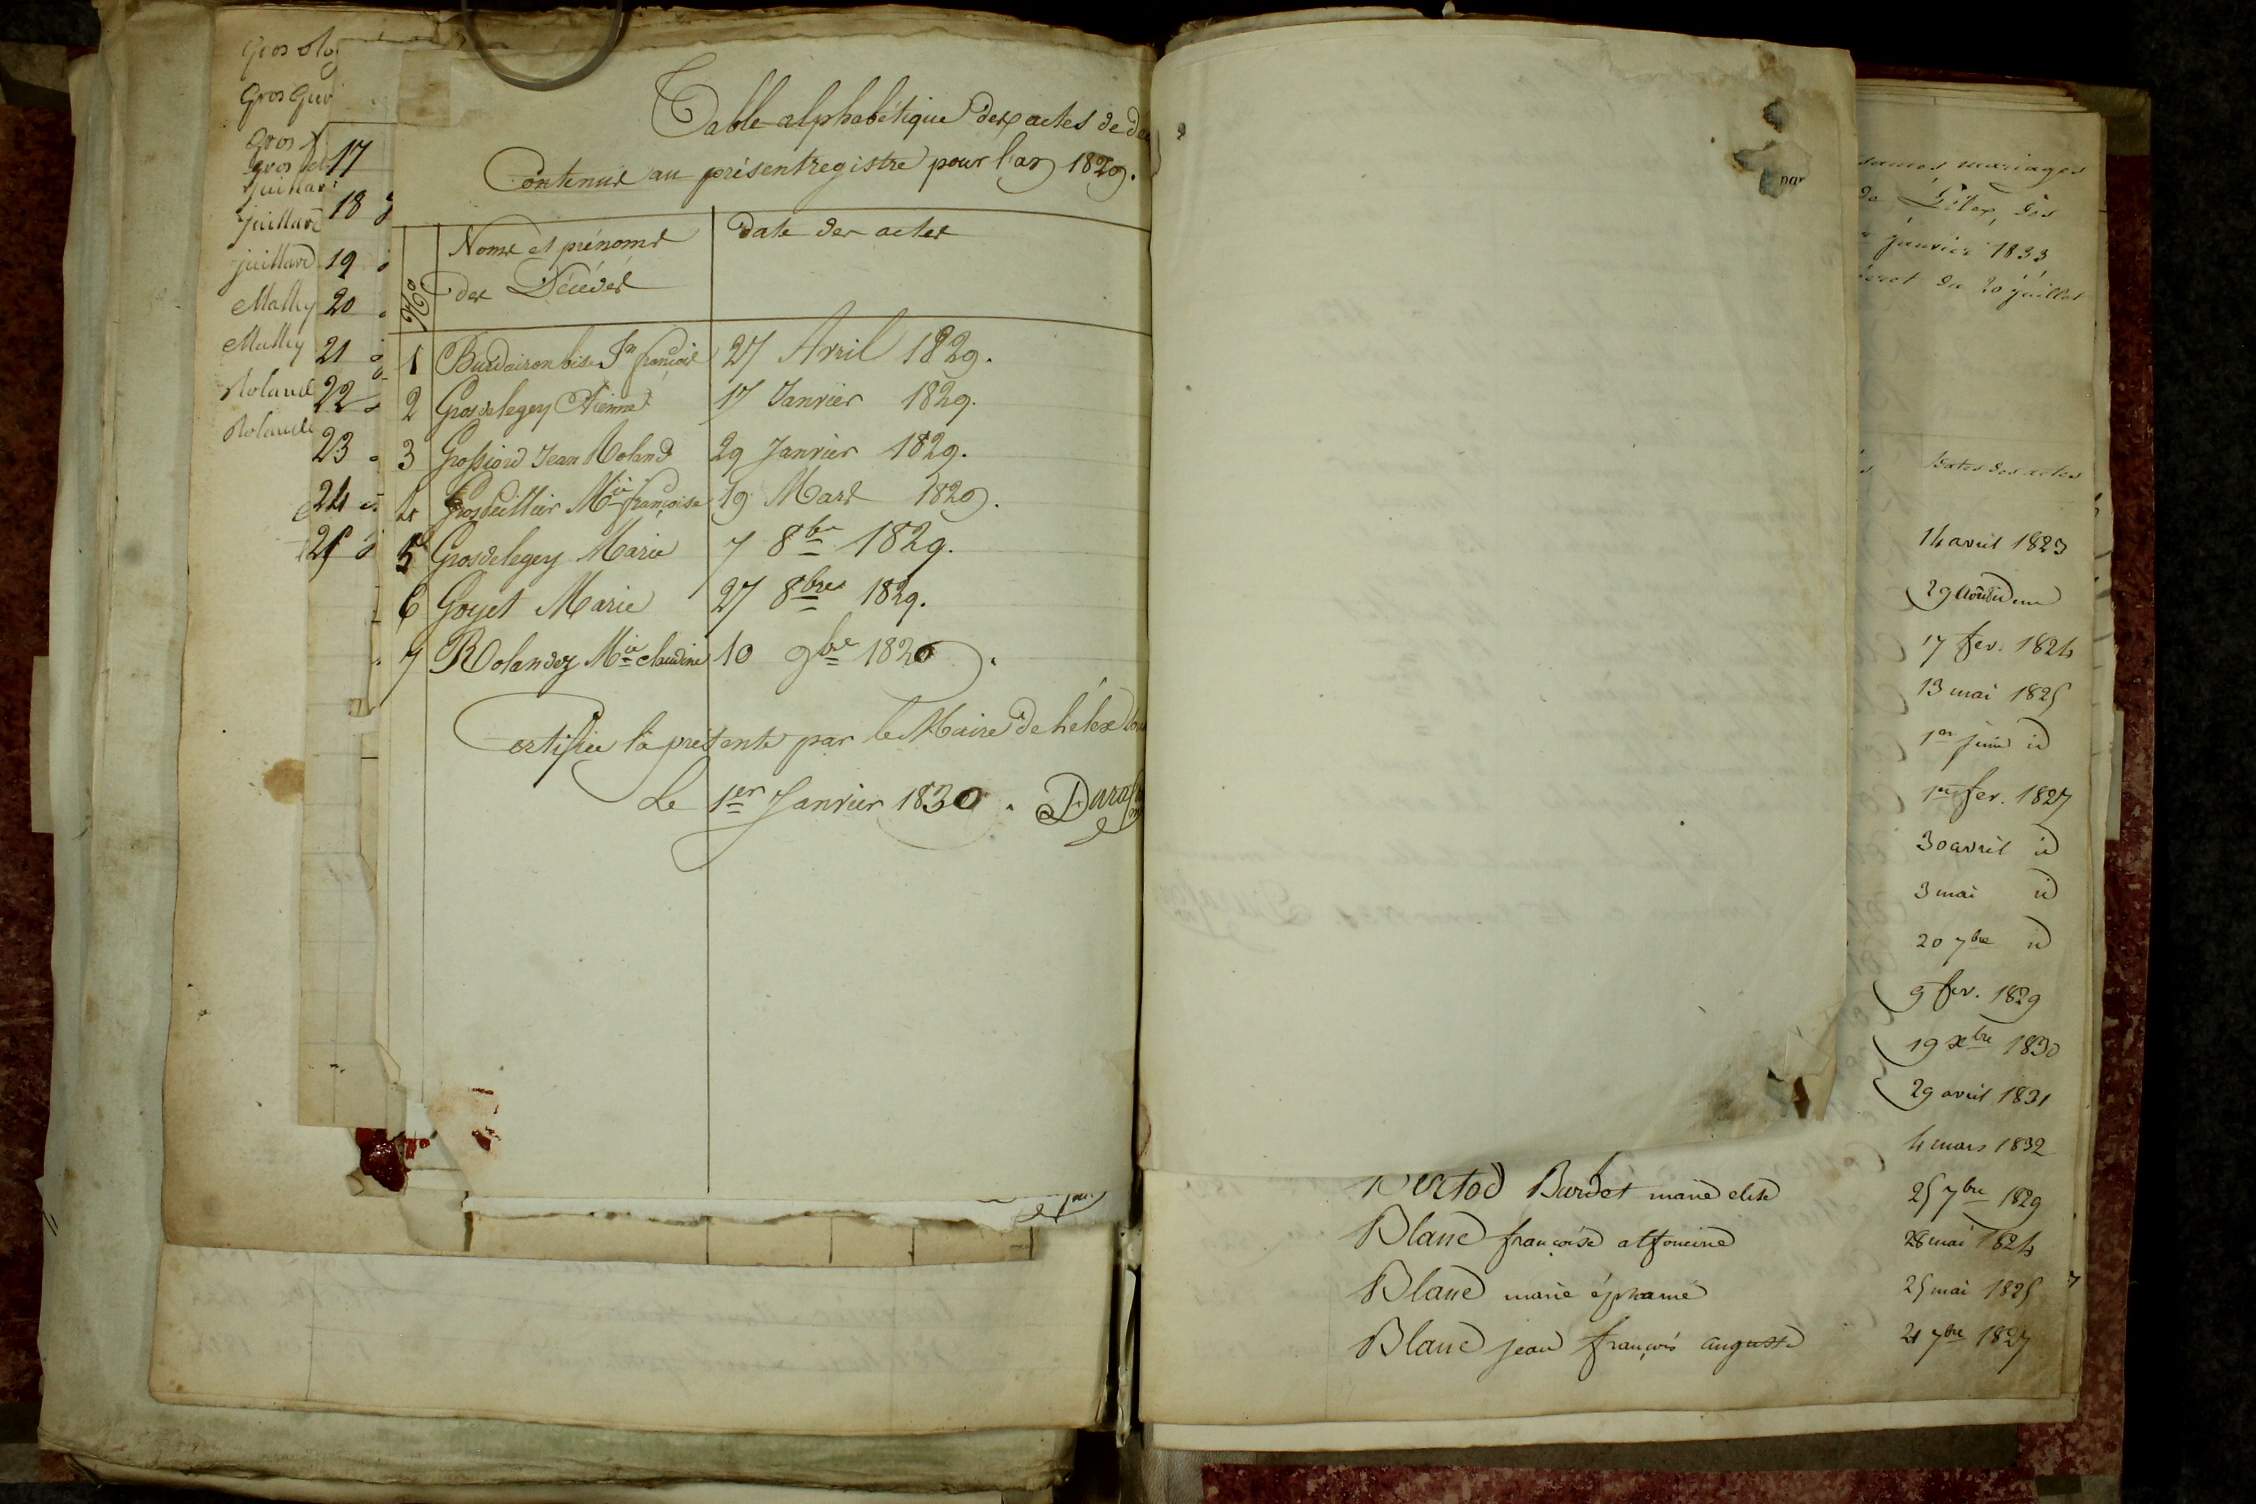 Gros
Gros
Gros
Gros
Juillard
Juillard
Mathy
Mathy
Roland
Roland
17
18
19
20
21
22
23
24
25
Table alphabétique des actes de
Contenus au présent registre pour l'an 1829.
No Noms et prénoms Date des actes
des Décédés
1 Burdairon bise Jn françois 27 Avril 1829.
2 Grosdelegey Etienne 17 Janvier 1829.
3 Grossiord Jean Roland 29 Janvier 1829.
4 Mie françoise 19 Mars 1829.
5 Grosdelegey Marie 7 8bre 1829.
6 Goyet Marie 27 8bre 1829.
7 Rolandez Mie claudine 10 9bre 1829.
Certifiée la présente par le Maire de Lélex
Le 1er Janvier 1830.
par
mariages
de Lélex, dès
janvier 1833
du 20 juillet
Dates des actes
14 avril 1823
29 Août idem
17 fev. 1824
13 mai 1825
1er juin id
1er fev. 1827
30 avril id
3 mai id
20 7bre id
9 fev. 1829
19 xbre 1830
29 avril 1831
4 mars 1832
Bertod Burdet marie elise 25 7bre 1829
Blanc françoise alfonsine 28 mai 1824
Blanc marie éphanie 25 mai 1825
Blanc jean françois auguste 21 7bre 1827